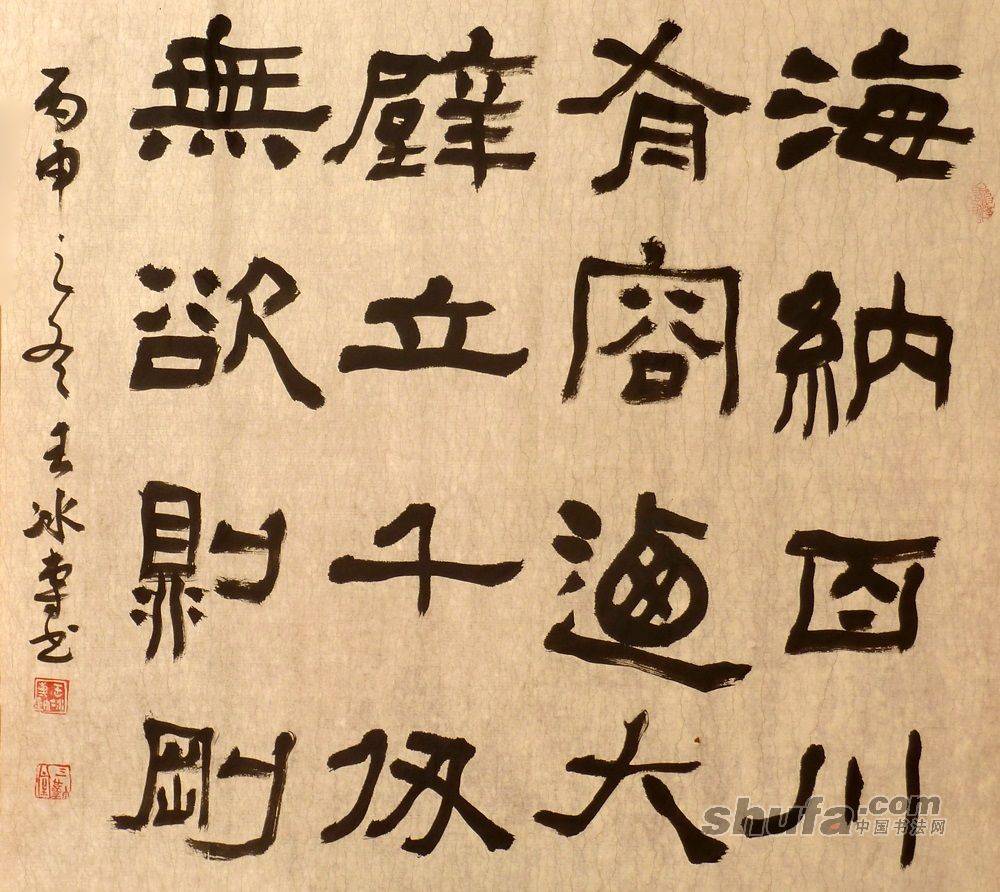 海納百川
有容迺大
壁立千仞
無欲則剛
丙申之冬王冰專书
shufa.com
中国书法网